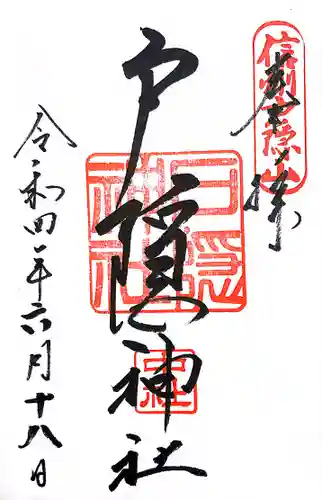 奉拝
信州戸隠山
戸隠神社
戸隠神社
中社
令和四年六月十八日